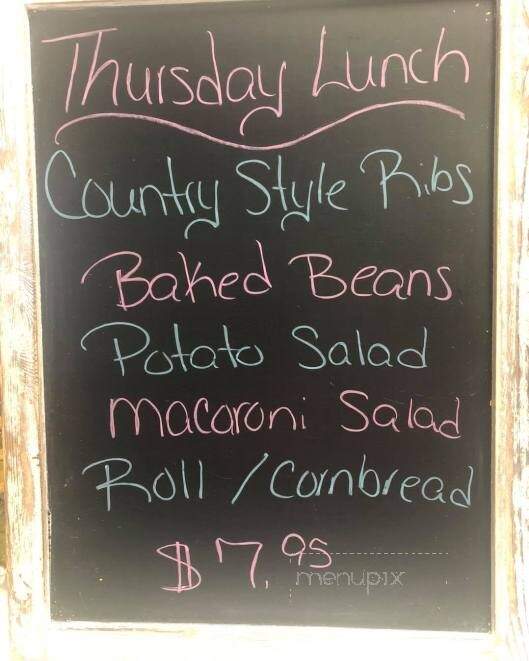 Thursday Lunch
Country Style Ribs
Baked Beans
Potato Salad
Macaroni Salad
Roll / Cornbread
$7.95
menupix